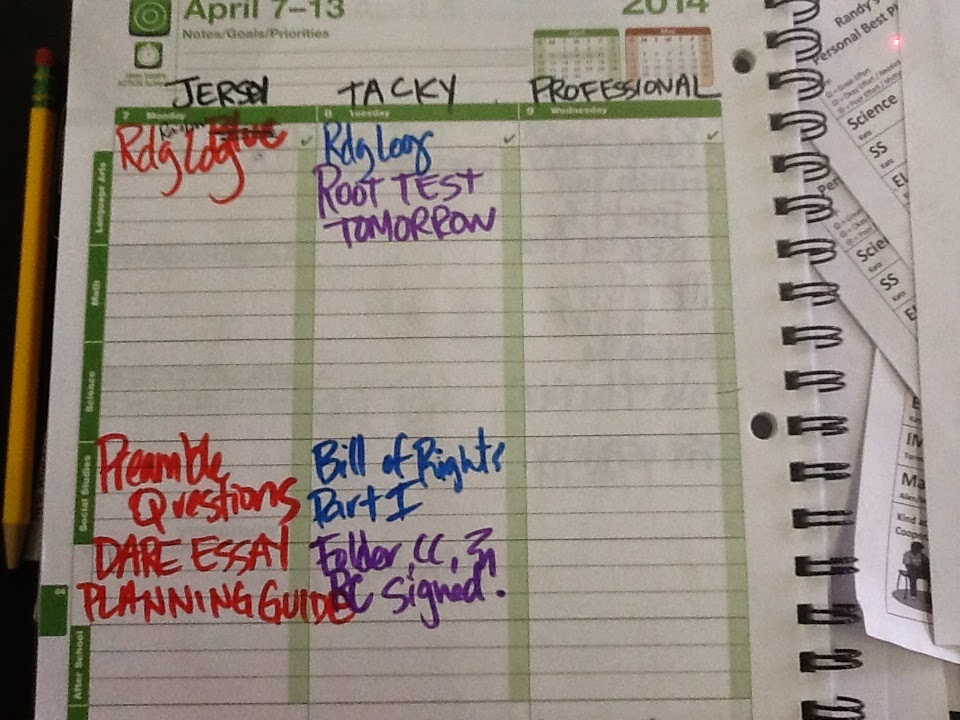 April 7–13
2014
Notes/Goals/Priorities
JERSEY TACKY PROFESSIONAL
7 Monday
8 Tuesday
9 Wednesday
Language Arts
Rdg Log
Rdg Log
ROOT TEST
TOMORROW
Math
Science
Social Studies
Preamble
Questions
DARE ESSAY
PLANNING GUIDE
Bill of Rights
Part I
Folder, CC,
RC signed!
After School
Randy's
Personal Best
Science
SS
Science
SS